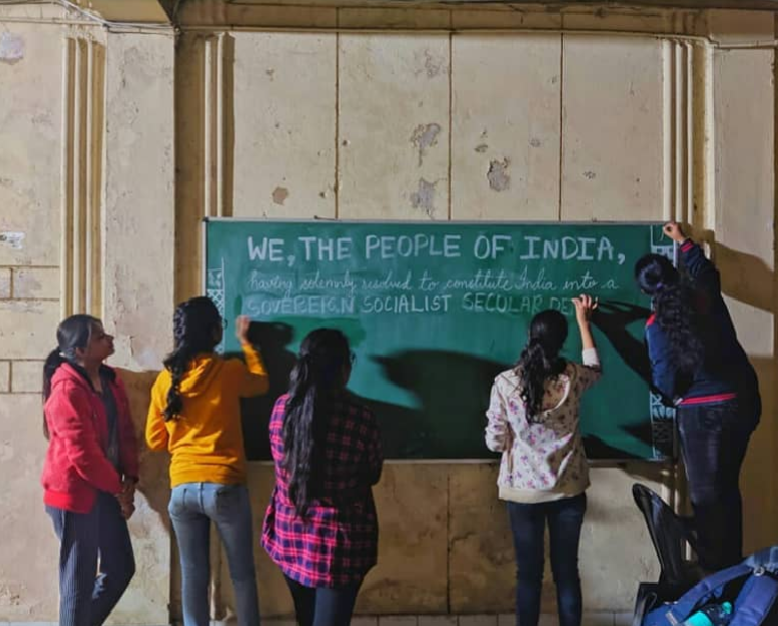 WE, THE PEOPLE OF INDIA,
having solemnly resolved to constitute India into a
SOVEREIGN SOCIALIST SECULAR DE